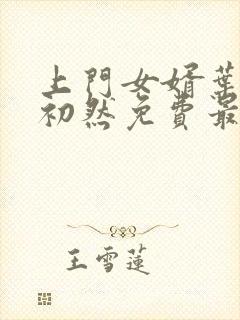 上門女婿葉
初然免費最
王雪蓮